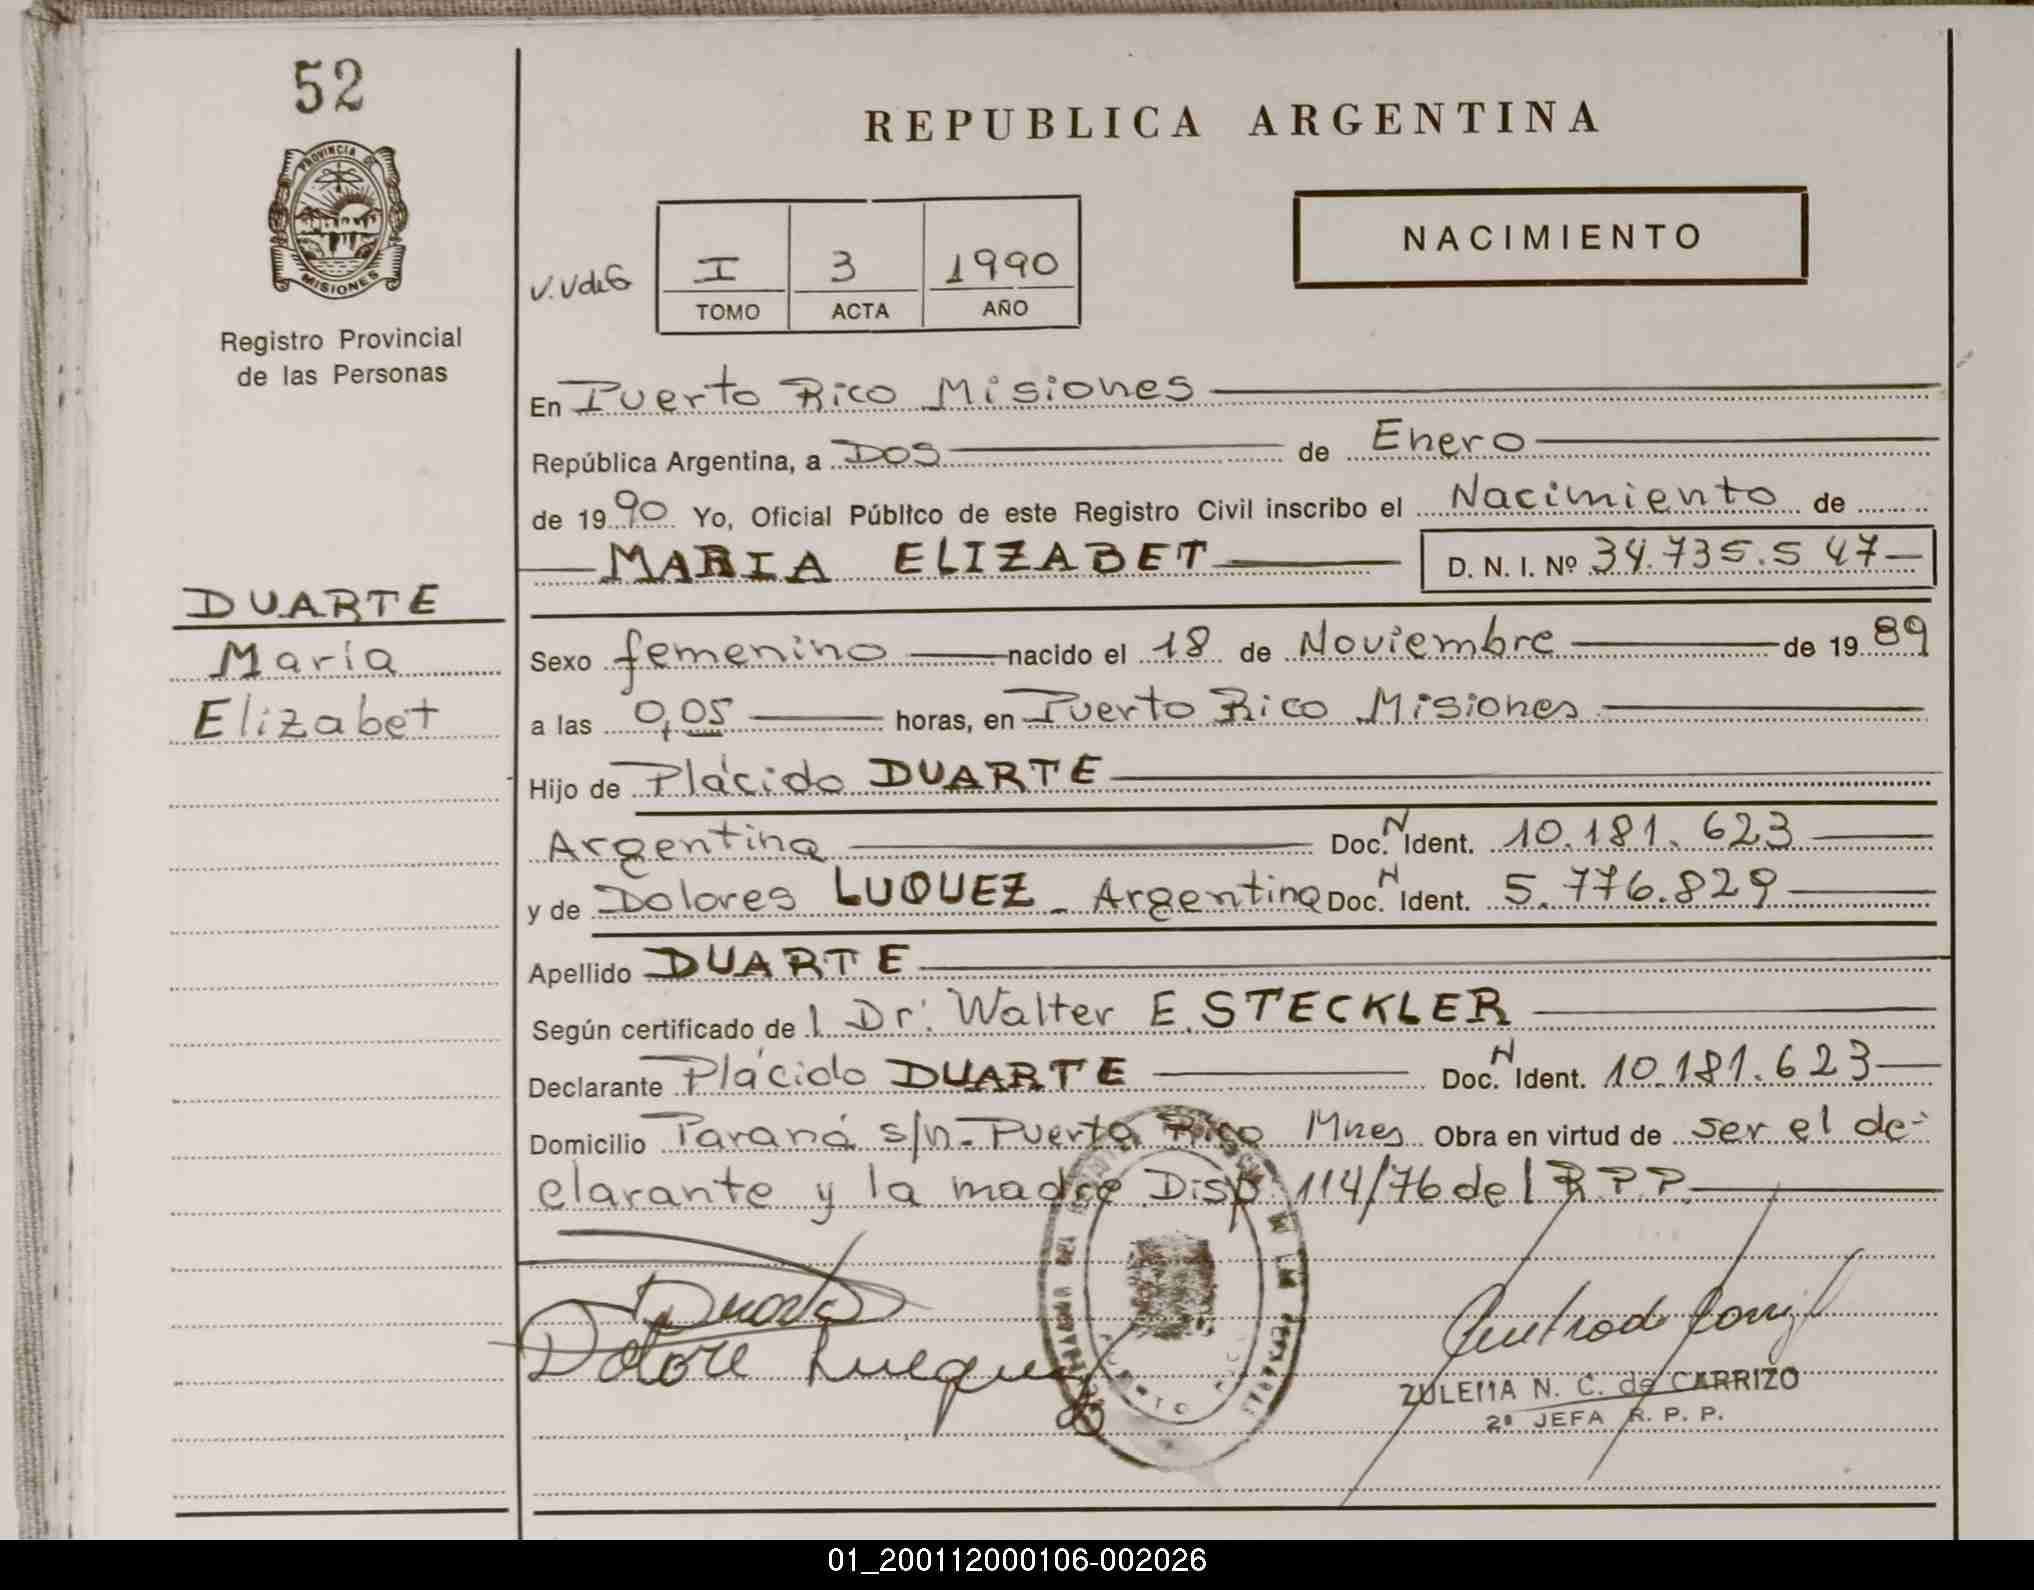 52
REPUBLICA ARGENTINA
PROVINCIA DE
MISIONES
Registro Provincial
de las Personas
NACIMIENTO
V.VdeG
I 3 1990
TOMO ACTA AÑO
En Puerto Rico Misiones
República Argentina, a Dos de Enero
de 1990 Yo, Oficial Público de este Registro Civil inscribo el Nacimiento de
MARIA ELIZABET D. N. I. Nº 34.735.547
DUARTE
María
Elizabet
Sexo femenino nacido el 18 de Noviembre de 1989
a las 0,05 horas, en Puerto Rico Misiones
Hijo de Plácido DUARTE
Argentina Doc. N Ident. 10.181.623
y de Dolores LUQUEZ - Argentina Doc. N Ident. 5.776.829
Apellido DUARTE
Según certificado de l Dr. Walter E. STECKLER
Declarante Plácido DUARTE Doc. N Ident. 10.181.623
Domicilio Paraná s/n - Puerto Rico Mnes Obra en virtud de ser el de-
clarante y la madre Disp. 114/76 del R.P.P.
Duarte
Dolore Luquez
ZULEMA N. C. de CARRIZO
2ª JEFA R. P. P.
01_200112000106-002026